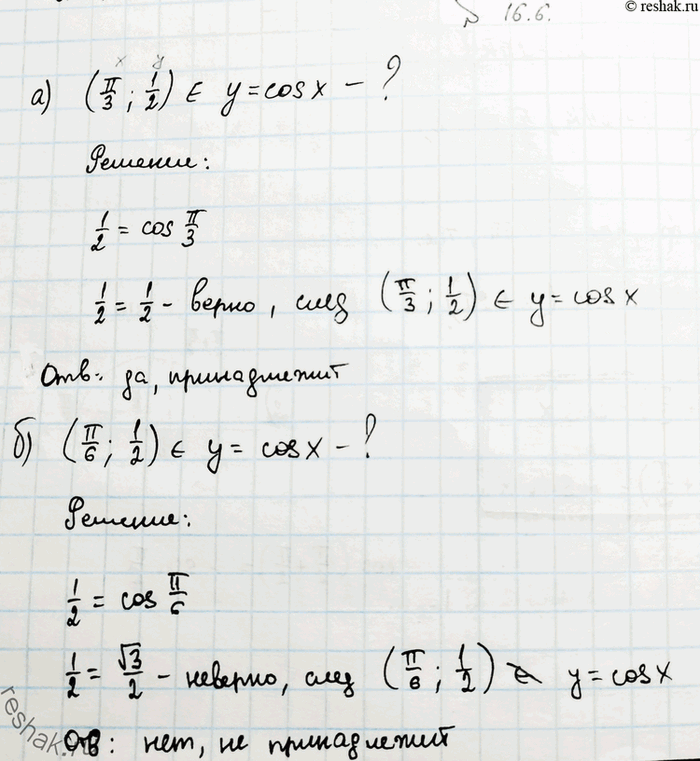 © reshak.ru
№ 16.6.
x y
а) (π/3 ; 1/2) ∈ y = cos x - ?
Решение:
1/2 = cos π/3
1/2 = 1/2 - верно, след (π/3 ; 1/2) ∈ y = cos x
Отв: да, принадлежит
б) (π/6 ; 1/2) ∈ y = cos x - ?
Решение:
1/2 = cos π/6
1/2 = √3/2 - неверно, след (π/6 ; 1/2) ∉ y = cos x
Отв: нет, не принадлежит
reshak.ru